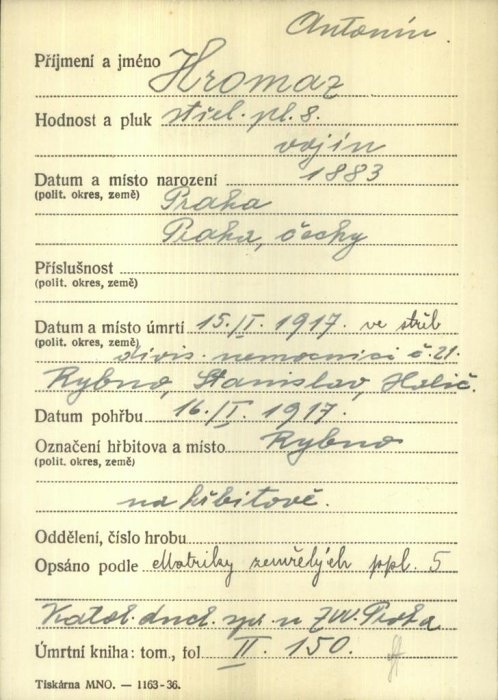 Antonín
Příjmení a jméno Hromaz
Hodnost a pluk střel. pl. 8.
vojín
Datum a místo narození 1883
(polit. okres, země) Praha
Praha, čechy
Příslušnost
(polit. okres, země)
Datum a místo úmrtí 15./I. 1917. ve střel
(polit. okres, země) divis. nemocnici č. 21.
Rybno, Stanislav, Halič.
Datum pohřbu 16./I. 1917.
Označení hřbitova a místo Rybno
(polit. okres, země)
na hřbitově.
Oddělení, číslo hrobu
Opsáno podle Matriky zemřelých ppl. 5
Katol. duch. spr. u ZVV. Praha
Úmrtní kniha: tom., fol II. 150.
Tiskárna MNO. — 1163-36.